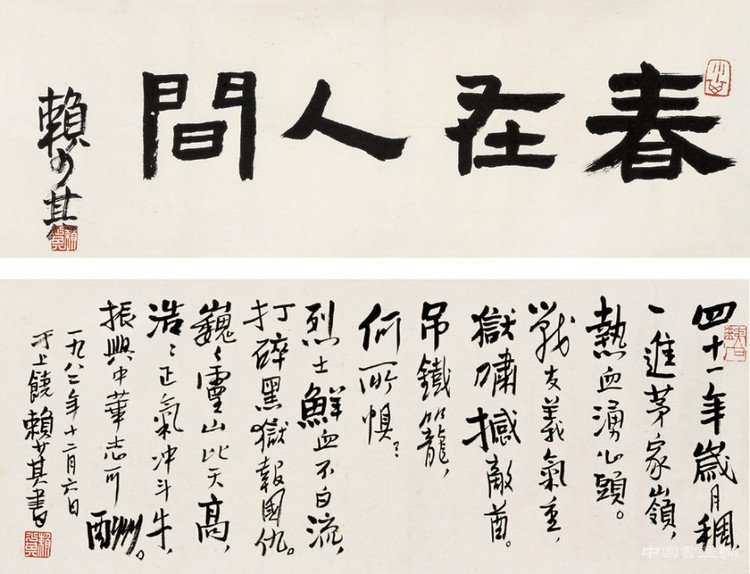 春在人間
賴少其
四十一年歲月稠，
一進茅家嶺，
熱血湧心頭。
戰友義氣重，
獄嘯撼敵酋。
吊鐵籠，
何所懼？
烈士鮮血不白流，
打碎黑獄報國仇。
巍々靈山比天高，
浩々正氣冲斗牛，
振興中華志可酬。
一九八二年十二月六日
于上饒賴少其書